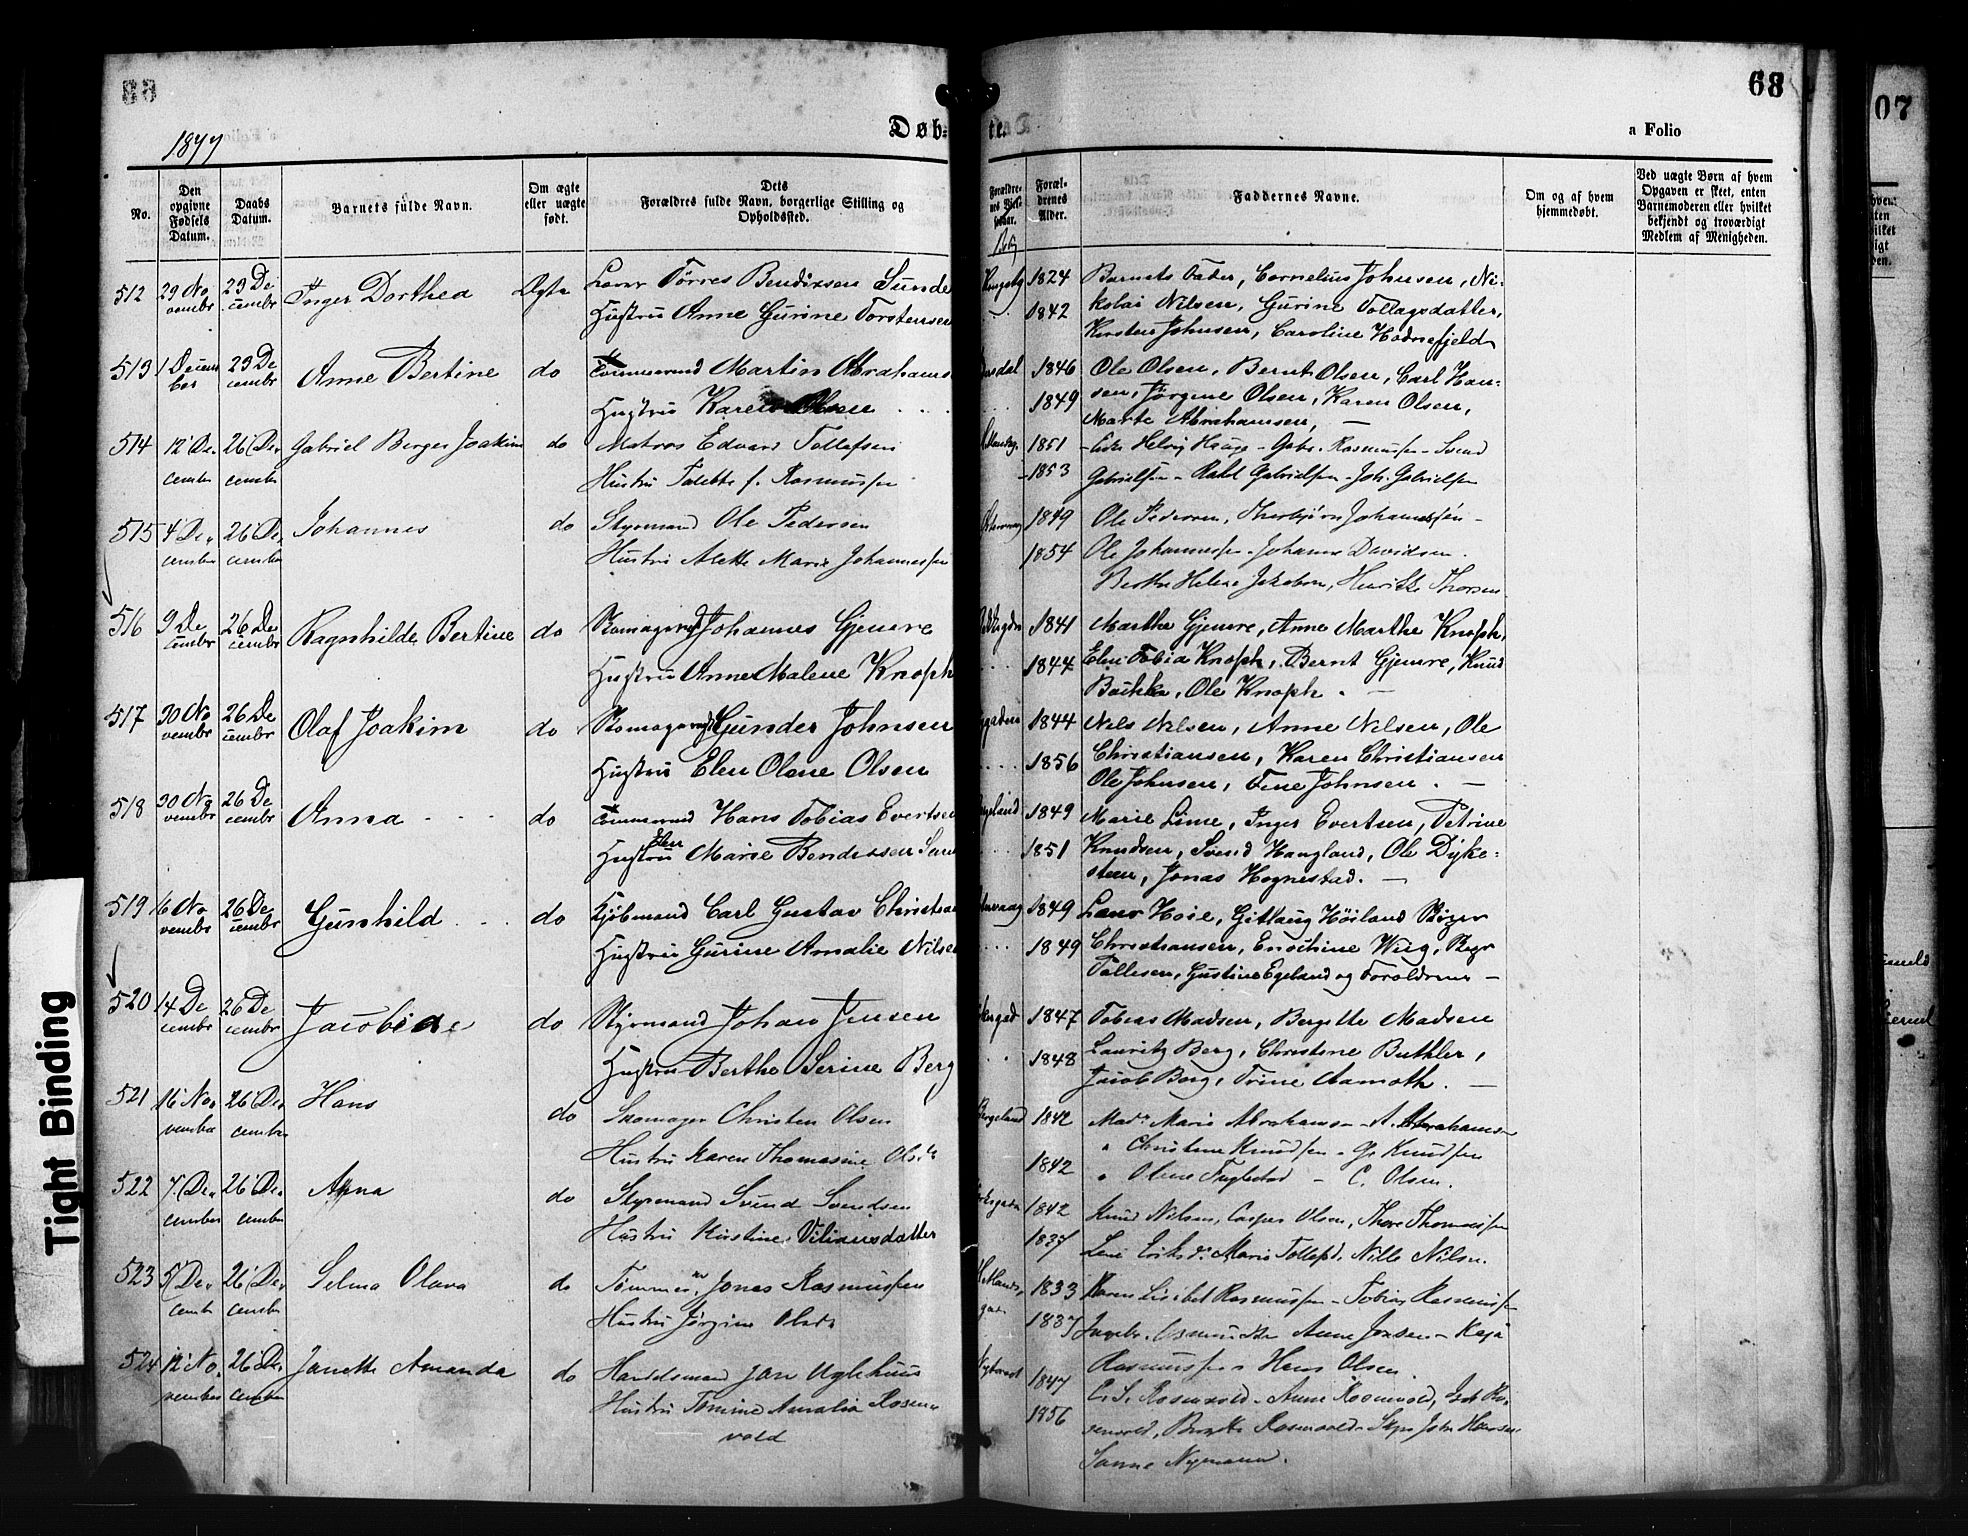 68
1877
Døb=
te.
68
a Folio
No.
Den opgivne Fødsels Datum.
Daabs Datum.
Barnets fulde Navn.
Om ægte eller uægte født.
Dets Forældres fulde Navn, borgerlige Stilling og Opholdssted.
Forældrenes
Forældrenes Alder.
Faddernes Navne.
Om og af hvem hjemmedøbt.
Ved uægte Børn af hvem Opgaven er skeet, enten Barnemoderen eller hvilket bekjendt og troværdigt Medlem af Menigheden.
512 29 November 23 December Inger Dorthea Ægte Torres Bendixsen Sunde 1824 Barnets Fader, Cornelius Johnsen, Ni-
Hustru Anne Gurine Torstensen 1842 kolai Nilsen, Gurine Tollagsdatter,
Kirsten Johnsen, Caroline Hodnefjeld
513 1 December 23 December Anne Bertine do Tømmermand Martin Abrahams 1846 Ole Olsen, Bernt Olsen, Carl Han-
Hustru Karen Olsen 1849 sen, Jørgine Olsen, Karen Olsen,
Marte Abrahamsen, —
514 12 December 26 December Gabriel Berger Joakim do Matros Edvard Tollefsen 1851 Helvig Hauge - Gabr. Rasmussen - Svend
Hustru Talette f. Rasmussen 1853 Gabrielsen - Rakel Gabrielsen - Joh. Gabrielsen
515 4 December 26 December Johannes do Styrmand Ole Pedersen 1849 Ole Pedersen, Thorbjørn Johannessen -
Hustru Alette Marie Johannessen 1854 Ole Johannessen - Johanne Davidsen.
Berthe Helene Jakobsen, Henrikke Thorsen
516 9 December 26 December Ragnhilde Bertine do Skomagersvd Johannes Gjemre 1841 Marthe Gjemre, Anne Marthe Knoph,
Hustru Anne Malene Knoph 1844 Elen Tobia Knoph, Bernt Gjemre, Knud
Ole Knoph. —
517 30 November 26 December Olaf Joakim do Skomagersvd Gunder Johnsen 1844 Nils Nilsen, Anne Nilsen, Ole
Hustru Elen Olene Olsen 1856 Christiansen, Karen Christiansen
Ole Johnsen, Tine Johnsen. —
518 30 November 26 December Anna do Tømmermand Hans Tobias Evertsen 1849 Marie Lime, Inger Evertsen, Petrine
Hustru Elen Marie Bendixsen 1851 Knudsen, Svend Haugland, Ole Dyke=
steen, Jonas Hognestad. —
519 16 November 26 December Gunhild do Kjøbmand Carl Gustav Christian 1849 Lars Hoie, Gitlaug Høiland
Hustru Gurine Amalie Nilsen 1849 Christiansen, Enochine Wiig,
Tollesen, Gustine Egeland og Forældrene —
520 14 December 26 December Jacobine do Styrmand Johan Jensen 1847 Tobias Madsen, Bergitte Madsen
Hustru Berthe Serine Berg 1848 Lauritz Berg, Christine Buthler,
Jacob Berg, Trine Aamoth. —
521 16 November 26 December Hans do Skomager Christen Olsen Bergeland 1842 Mad. Marie Abrahamsen - A. Abrahamsen
Hustru Karen Thomasine Olsdr 1842 " Christine Knudsen - G. Knudsen
" Oline Fuglestad - C. Olsen.
522 7 December 26 December Anna do Styrmand Svend Svendsen 1842 Knud Nilsen, Casper Olsen, Thore Thomassen
Hustru Kirstine Viliamsdatter 1837 Lene Eriksdr. Marie Tollefsd. Nille Nilsen.
523 5 December 26 December Selma Olava do Tømmerm Jonas Rasmussen 1833 Karen Lisebet Rasmussen - Tobias Rasmussen
Hustru Jørgine Olsdr 1837 Ingebr. Osmundsen Anne Jonsen - Kaja
Rasmussen Hans Olsen.
524 12 November 26 December Janette Amanda do Handelsmand Jan Uglehuus 1847 C. S. Rosenvold - Anne Rosenvold,
Hustru Tomine Amalia Rosen 1856 senvold, Rosenvold John Hansen
vold Sanne Nymann.
Tight Binding
07